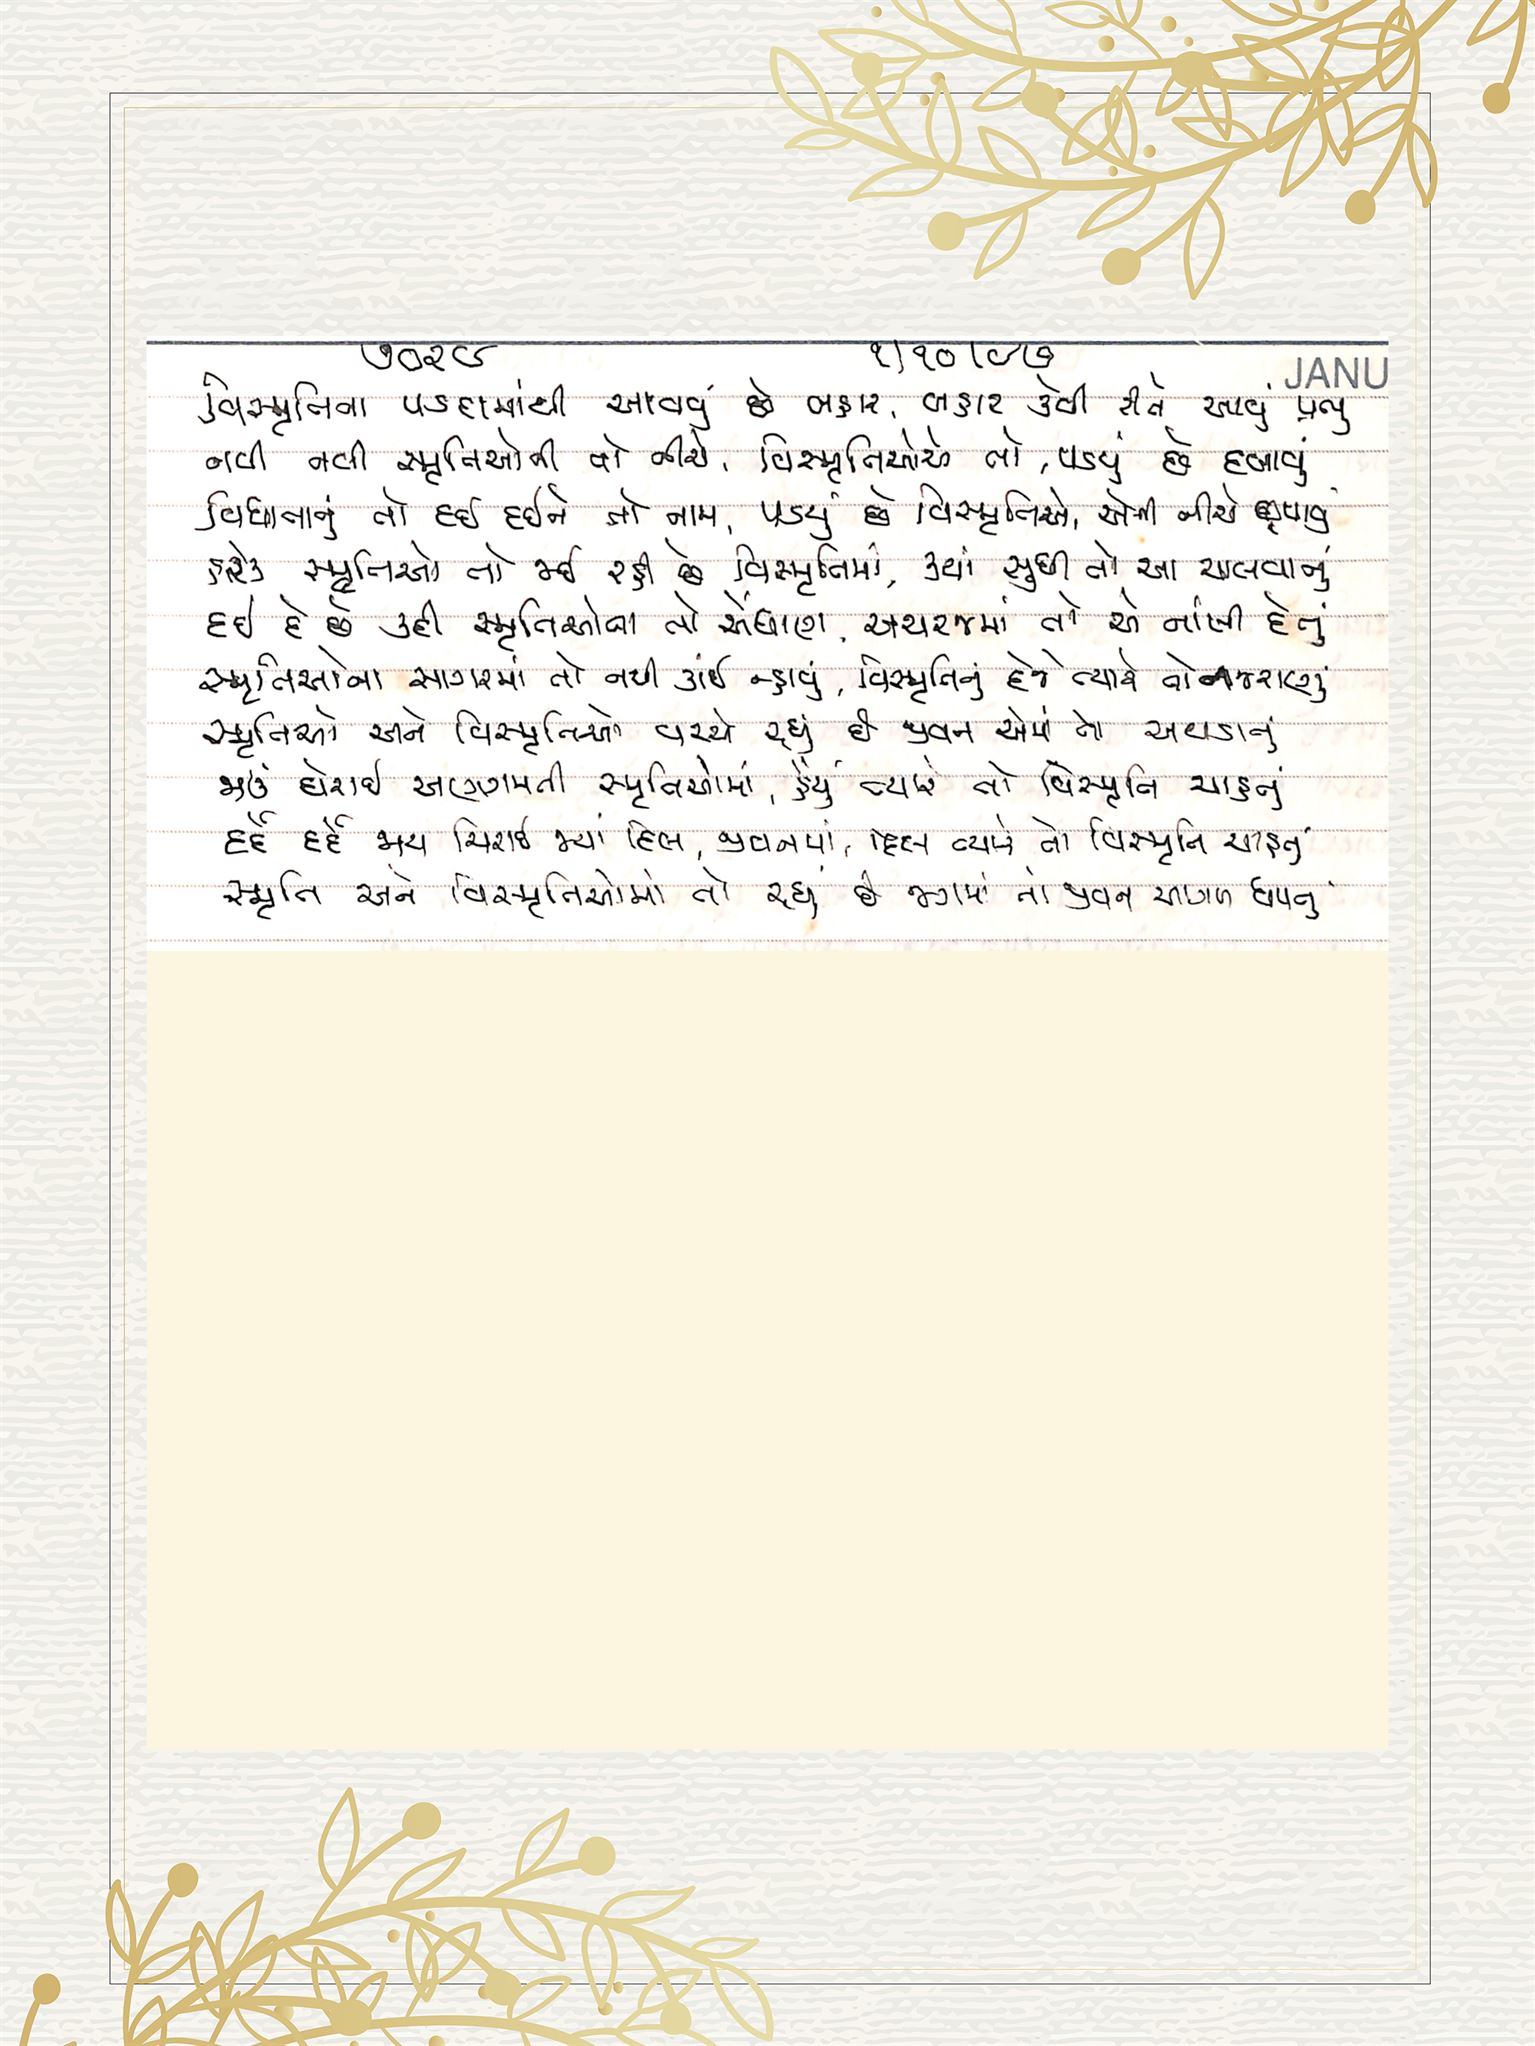 ૭૦૨૯ ૧/૧૦/૯૭
JANU
વિસ્મૃતિના પડદામાંથી આવવું છે બહાર, બહાર કેવી રીતે આવવું પ્રભુ
નવી નવી સ્મૃતિઓની તો નીચે, વિસ્મૃતિઓએ તો, પડયું છે દબાવું
વિધાતાનું તો દઈ દઈને તો નામ, પડયું છે વિસ્મૃતિએ, એની નીચે છુપાવું
હરેક સ્મૃતિઓ તો જઈ રહી છે વિસ્મૃતિમાં, કયાં સુધી તો આ ચાલવાનું
દઈ દે છે કદી સ્મૃતિઓના તો એંધાણ, અચરજમાં તો એ નાંખી દેતું
સ્મૃતિઓના સાગરમાં તો નથી કાંઈ ન્હાવું, વિસ્મૃતિનું દેજે ત્યારે તો નજરાણું
સ્મૃતિઓ અને વિસ્મૃતિઓ વચ્ચે રહ્યું છે જીવન એમાં તો અથડાતું
જાઉં ઘેરાઈ અણગમતી સ્મૃતિઓમાં, હૈયું ત્યારે તો વિસ્મૃતિ ચાહતું
દર્દે દર્દે જાય ચિરાઈ જ્યાં દિલ, જીવનમાં, દિલ ત્યારે તો વિસ્મૃતિ ચાહતું
સ્મૃતિ અને વિસ્મૃતિઓમાં તો રહ્યું છે જગમાં તો જીવન આગળ ધપતું